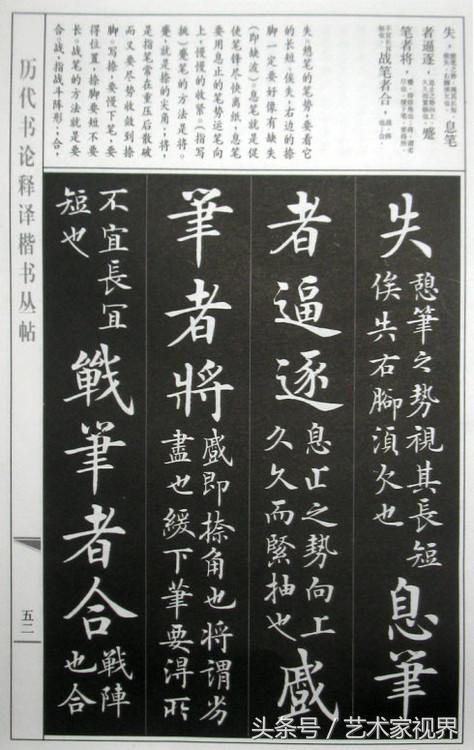 失，息笔
者逼逐，蹙
笔者将，战笔者合，
失，憩笔的笔势，要看它
的长短，俟失；右边的捺
脚一定要好像有缺失
（即缺波）。息笔就是促
使笔锋尽快离纸，息笔
要用息止的笔势运笔向
上，慢慢的收紧。（指写
挑）蹙笔的方法是将。
蹙，就是捺的尖角；将，
是指笔常在重压后散破
而又要尽势收敛到捺
脚，写捺，要慢下笔，要
得位置，捺脚要短不要
长。战笔的方法就是要
合。战，指战斗阵形；合，
失
憩筆之勢視其長短
俟失右腳須欠也
息筆
者逼逐
息止之勢向上
久久而緊抽也
蹙
筆者將
蹙即捺角也將謂劣
盡也緩下筆要得所
不宜長宜
短也
戰筆者合
戰陣
也合
历代书论释译楷书丛帖
五二
头条号／艺术家视界